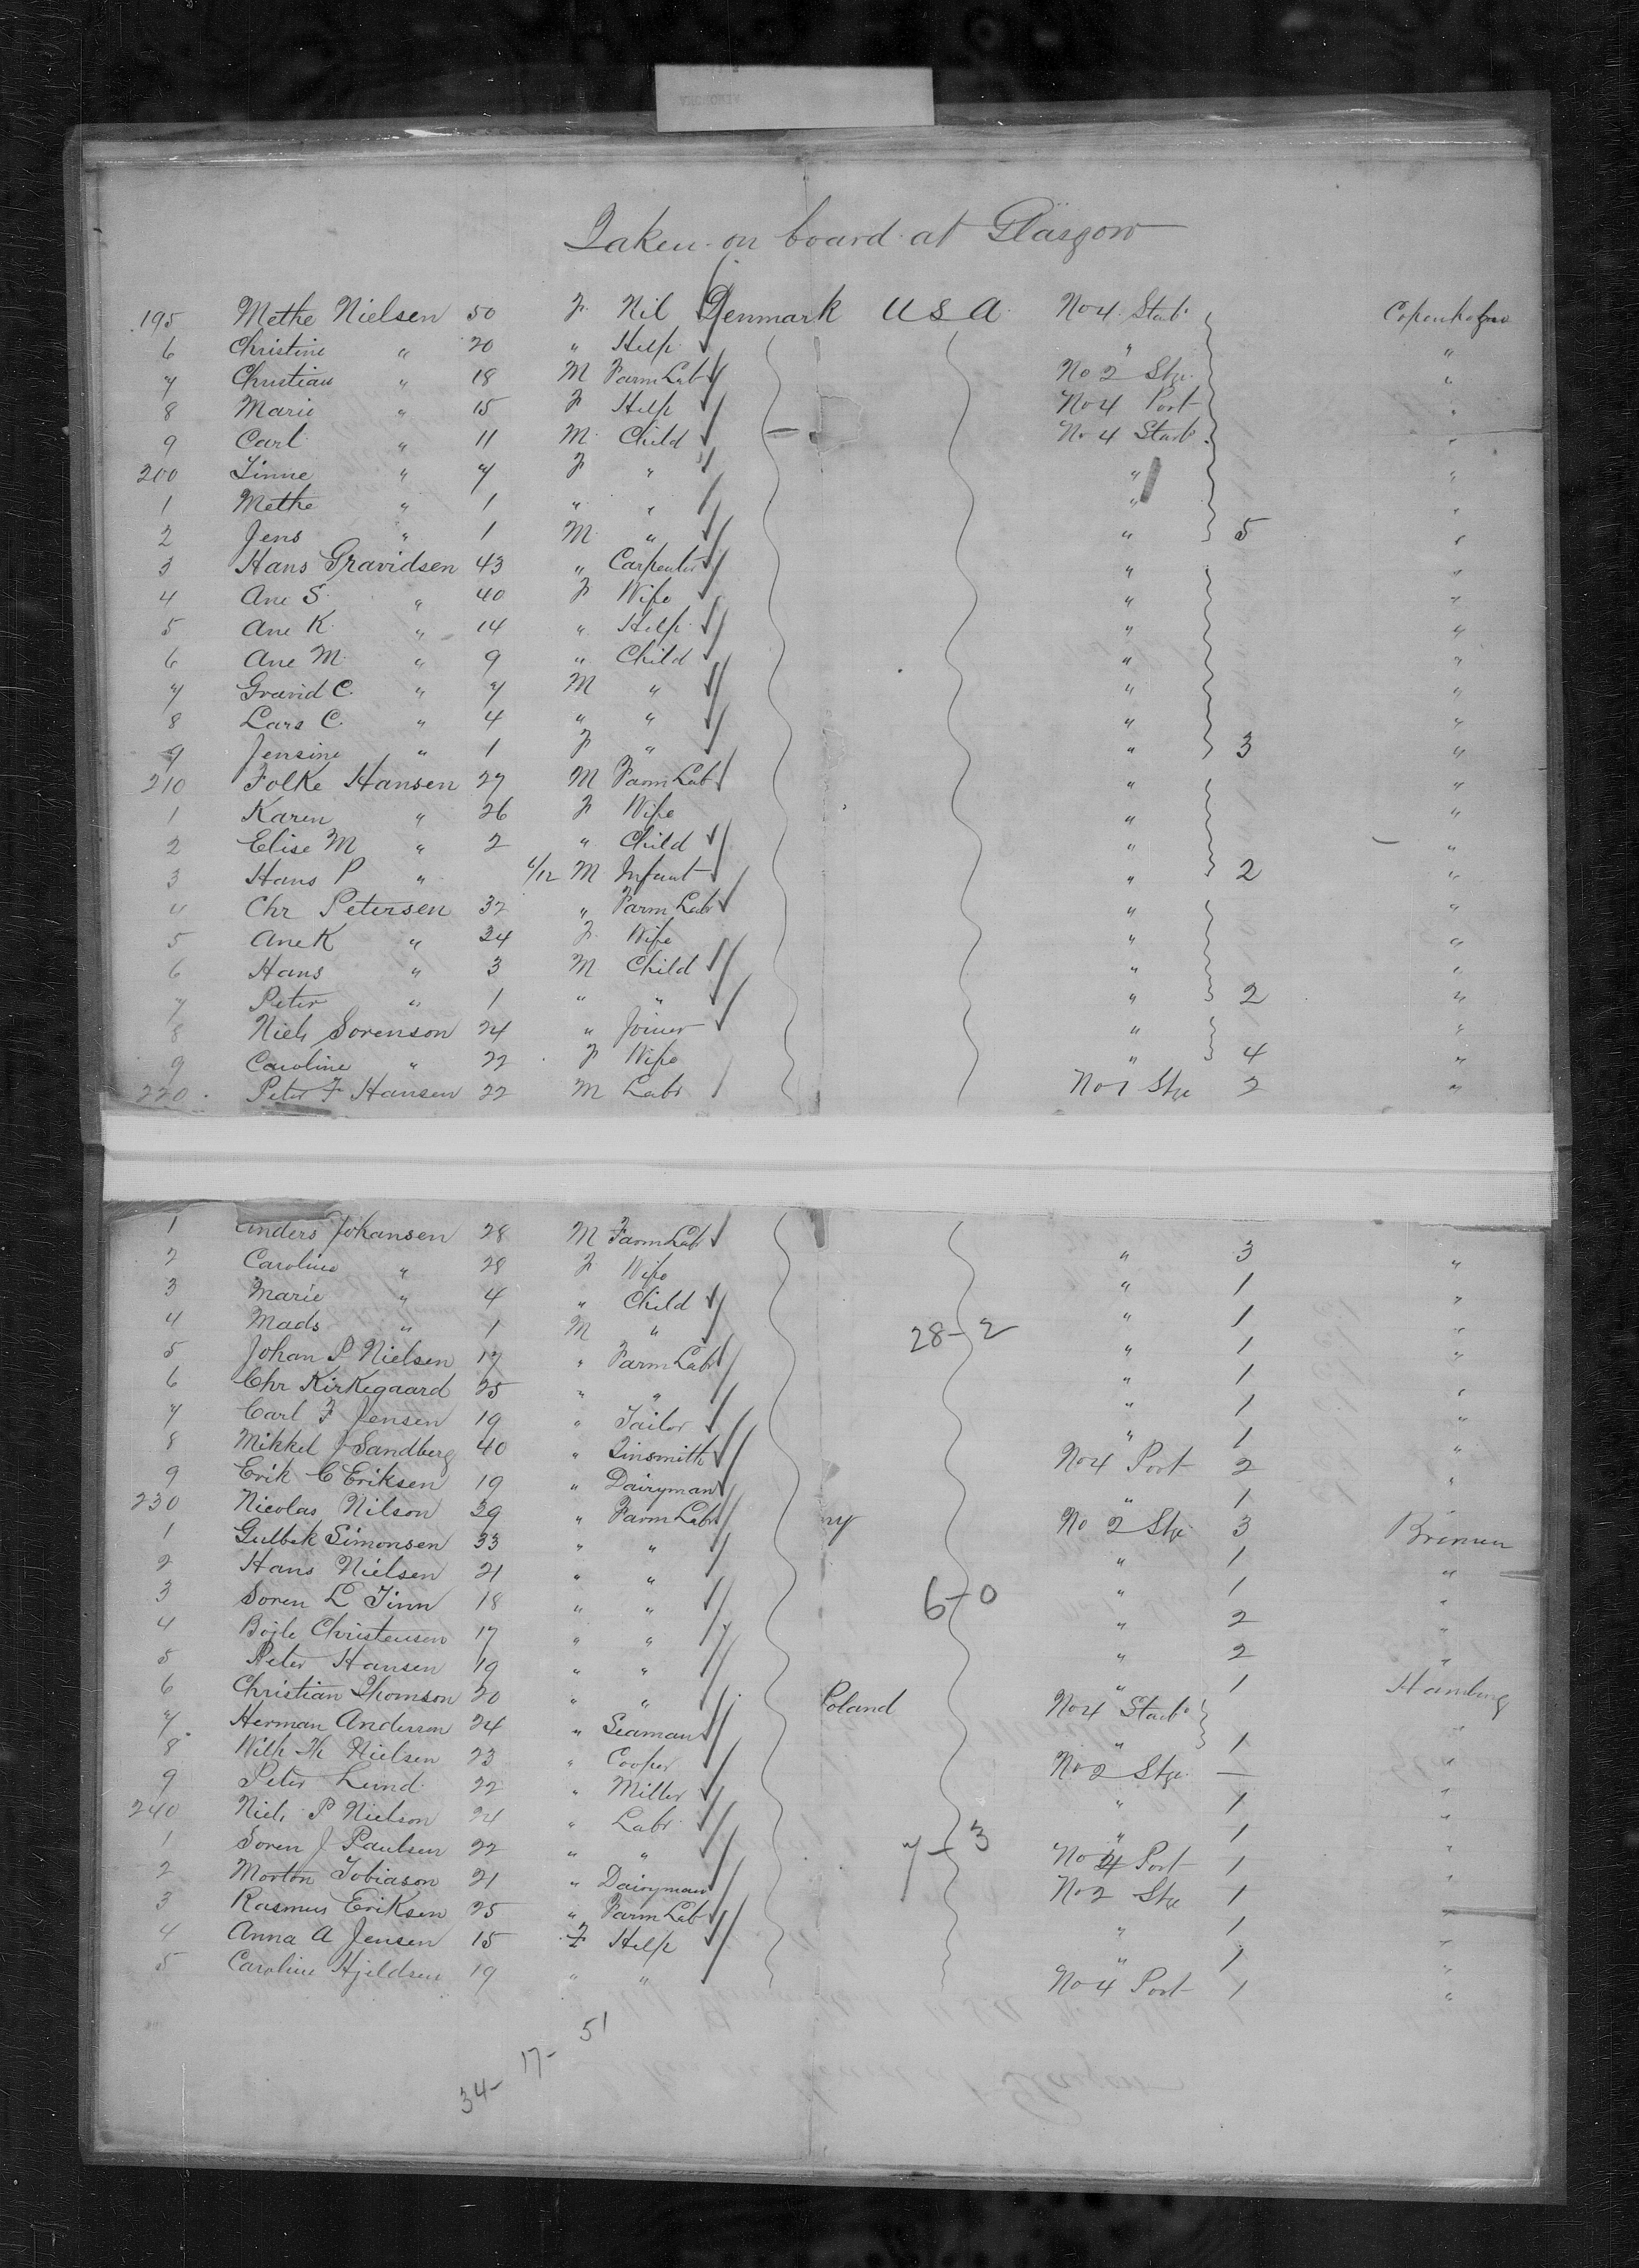 Taken on board at Glasgow
195 Methe Nielsen 50 F Nil Denmark U S A No 4 Starb Copenhagen
6 Christine " 20 " Help " "
7 Christian " 18 M Farm Lab No 2 Stge "
8 Marie " 15 F Help No 4 Port "
9 Carl " 11 M Child No 4 Starb "
200 Tinne " 7 F " " "
1 Methe " 1 " " " "
2 Jens " 1 M " " 5 "
3 Hans Gravidsen 43 " Carpenter " "
4 Ane S " 40 F Wife " "
5 Ane K " 14 " Help " "
6 Ane M " 9 " Child " "
7 Gravid C. " 7 M " " "
8 Lars C. " 4 " " " "
9 Jensine " 1 F " " 3 "
210 Folke Hansen 27 M Farm Lab " "
1 Karen " 26 F Wife " "
2 Elise M " 2 " Child " "
3 Hans P " 6/12 M Infant " 2 "
4 Chr Petersen 32 " Farm Labr " "
5 Ane K " 34 F Wife " "
6 Hans " 3 M Child " "
7 Peter " 1 " " " 2 "
8 Niels Sorenson 24 " Joiner " "
9 Caroline " 22 F Wife " 4 "
220 Peter F Hansen 22 M Labr No 1 Stge 2 "
1 Anders Johansen 28 M Farm Labr " 3 "
2 Caroline " 28 F Wife " 1 "
3 Marie " 4 " Child " 1 "
4 Mads " 1 M " 28 - 2 " 1 "
5 Johan P Nielsen 17 " Farm Labr " 1 "
6 Chr Kirkegaard 25 " " " 1 "
7 Carl F Jensen 19 " Tailor " 1 "
8 Mikkel J Sandberg 40 " Tinsmith No 4 Port 2 "
9 Erik C Eriksen 19 " Dairyman " 1 "
230 Nicolas Nilson 29 " Farm Labr No 2 Stge 3 Bremen
1 Gulbek Simonsen 33 " " " 1 "
2 Hans Nielsen 21 " " 6 - 0 " 1 "
3 Soren L Finn 18 " " " 2 "
4 Bojle Christensen 17 " " " 2 "
5 Peter Hansen 19 " " " 1 "
6 Christian Thomson 20 " " Poland No 4 Starb Hamburg
7 Herman Anderson 24 " Seaman " 1 "
8 Wilh Th Nielsen 23 " Cooper No 2 Stge — "
9 Peter Lund 22 " Miller " 1 "
240 Niels P Nielson 24 " Labr " 1 "
1 Soren J Paulsen 22 " " 7 - 3 No 4 Port 1 "
2 Morton Tobiason 21 " Dairyman No 2 Stge 1 "
3 Rasmus Eriksen 25 " Farm Lab " 1 "
4 Anna A Jensen 15 F Help " 1 "
5 Caroline Hjeldsen 19 " " No 4 Port 1 "
34 - 17 - 51